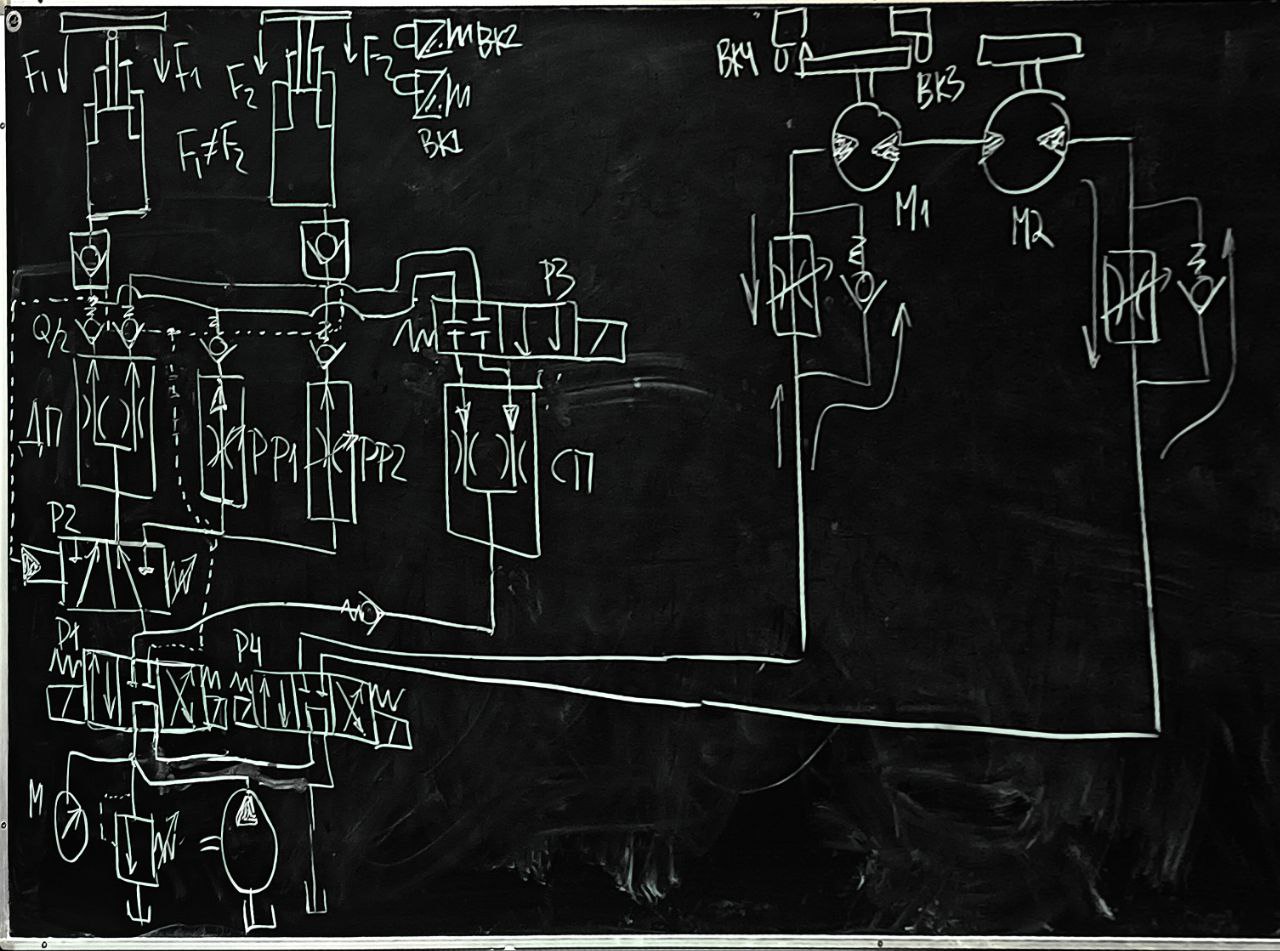 F₁
F₁
F₂
F₂
ВК2
ВК1
F₁≠F₂
ВК4
ВК3
М1
М2
Р3
Q/2
ДП
РР1
РР2
СП
Р2
Р1
Р4
М